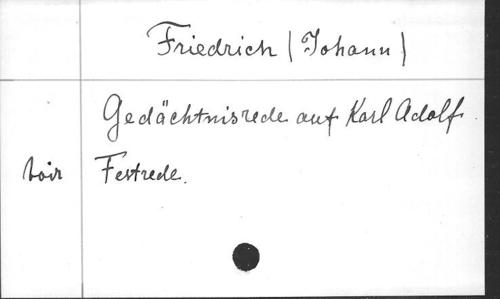 Friedrich (Johann)
Gedächtnisrede auf Karl Adolf.
Voir Festrede.